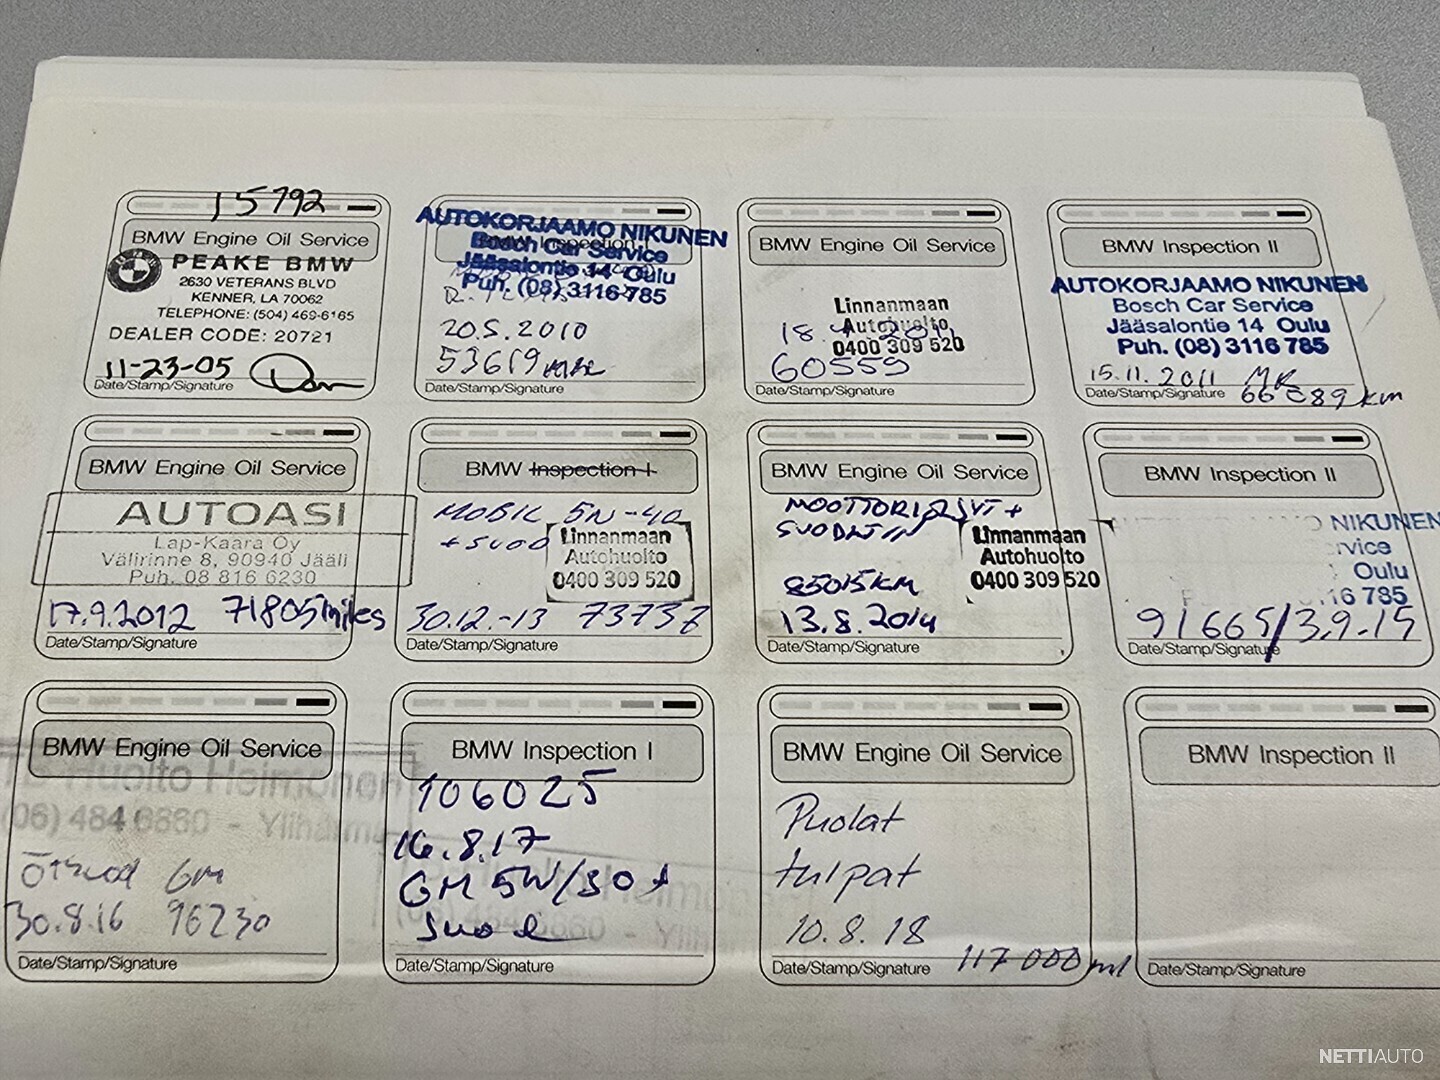 15792
BMW Engine Oil Service
PEAKE BMW
2630 VETERANS BLVD
KENNER, LA 70062
TELEPHONE: (504) 469-6165
DEALER CODE: 20721
11-23-05
Date/Stamp/Signature
AUTOKORJAAMO NIKUNEN
BMW Inspection I
Bosch Car Service
Jääsalontie 14 Oulu
Puh. (08) 3116 785
20.5.2010
53619
Date/Stamp/Signature
BMW Engine Oil Service
Linnanmaan
Autohuolto
0400 309 520
60559
Date/Stamp/Signature
BMW Inspection II
AUTOKORJAAMO NIKUNEN
Bosch Car Service
Jääsalontie 14 Oulu
Puh. (08) 3116 785
15.11.2011
66089 km
Date/Stamp/Signature
BMW Engine Oil Service
AUTOASI
Lap-Kaara Oy
Välirinne 8, 90940 Jääli
Puh. 08 816 6230
17.9.2012 71805 miles
Date/Stamp/Signature
BMW Inspection I
MOBIL 5W-40
+ SUOD
Linnanmaan
Autohuolto
0400 309 520
30.12.-13 73737
Date/Stamp/Signature
BMW Engine Oil Service
MOOTTORIÖLJYT +
SUODATIN
Linnanmaan
Autohuolto
0400 309 520
85015 KM
13.8.2014
Date/Stamp/Signature
BMW Inspection II
NIKUNEN
rvice
Oulu
16 785
91665/3.9.-15
Date/Stamp/Signature
BMW Engine Oil Service
Huolto Heimonen
(06) 484 6860 - Ylihärmä
GM
30.8.16 96230
Date/Stamp/Signature
BMW Inspection I
106025
16.8.17
GM 5W/30 +
Date/Stamp/Signature
BMW Engine Oil Service
Puolat
tulpat
10.8.18
117 000 ml
Date/Stamp/Signature
BMW Inspection II
Date/Stamp/Signature
NETTIAUTO